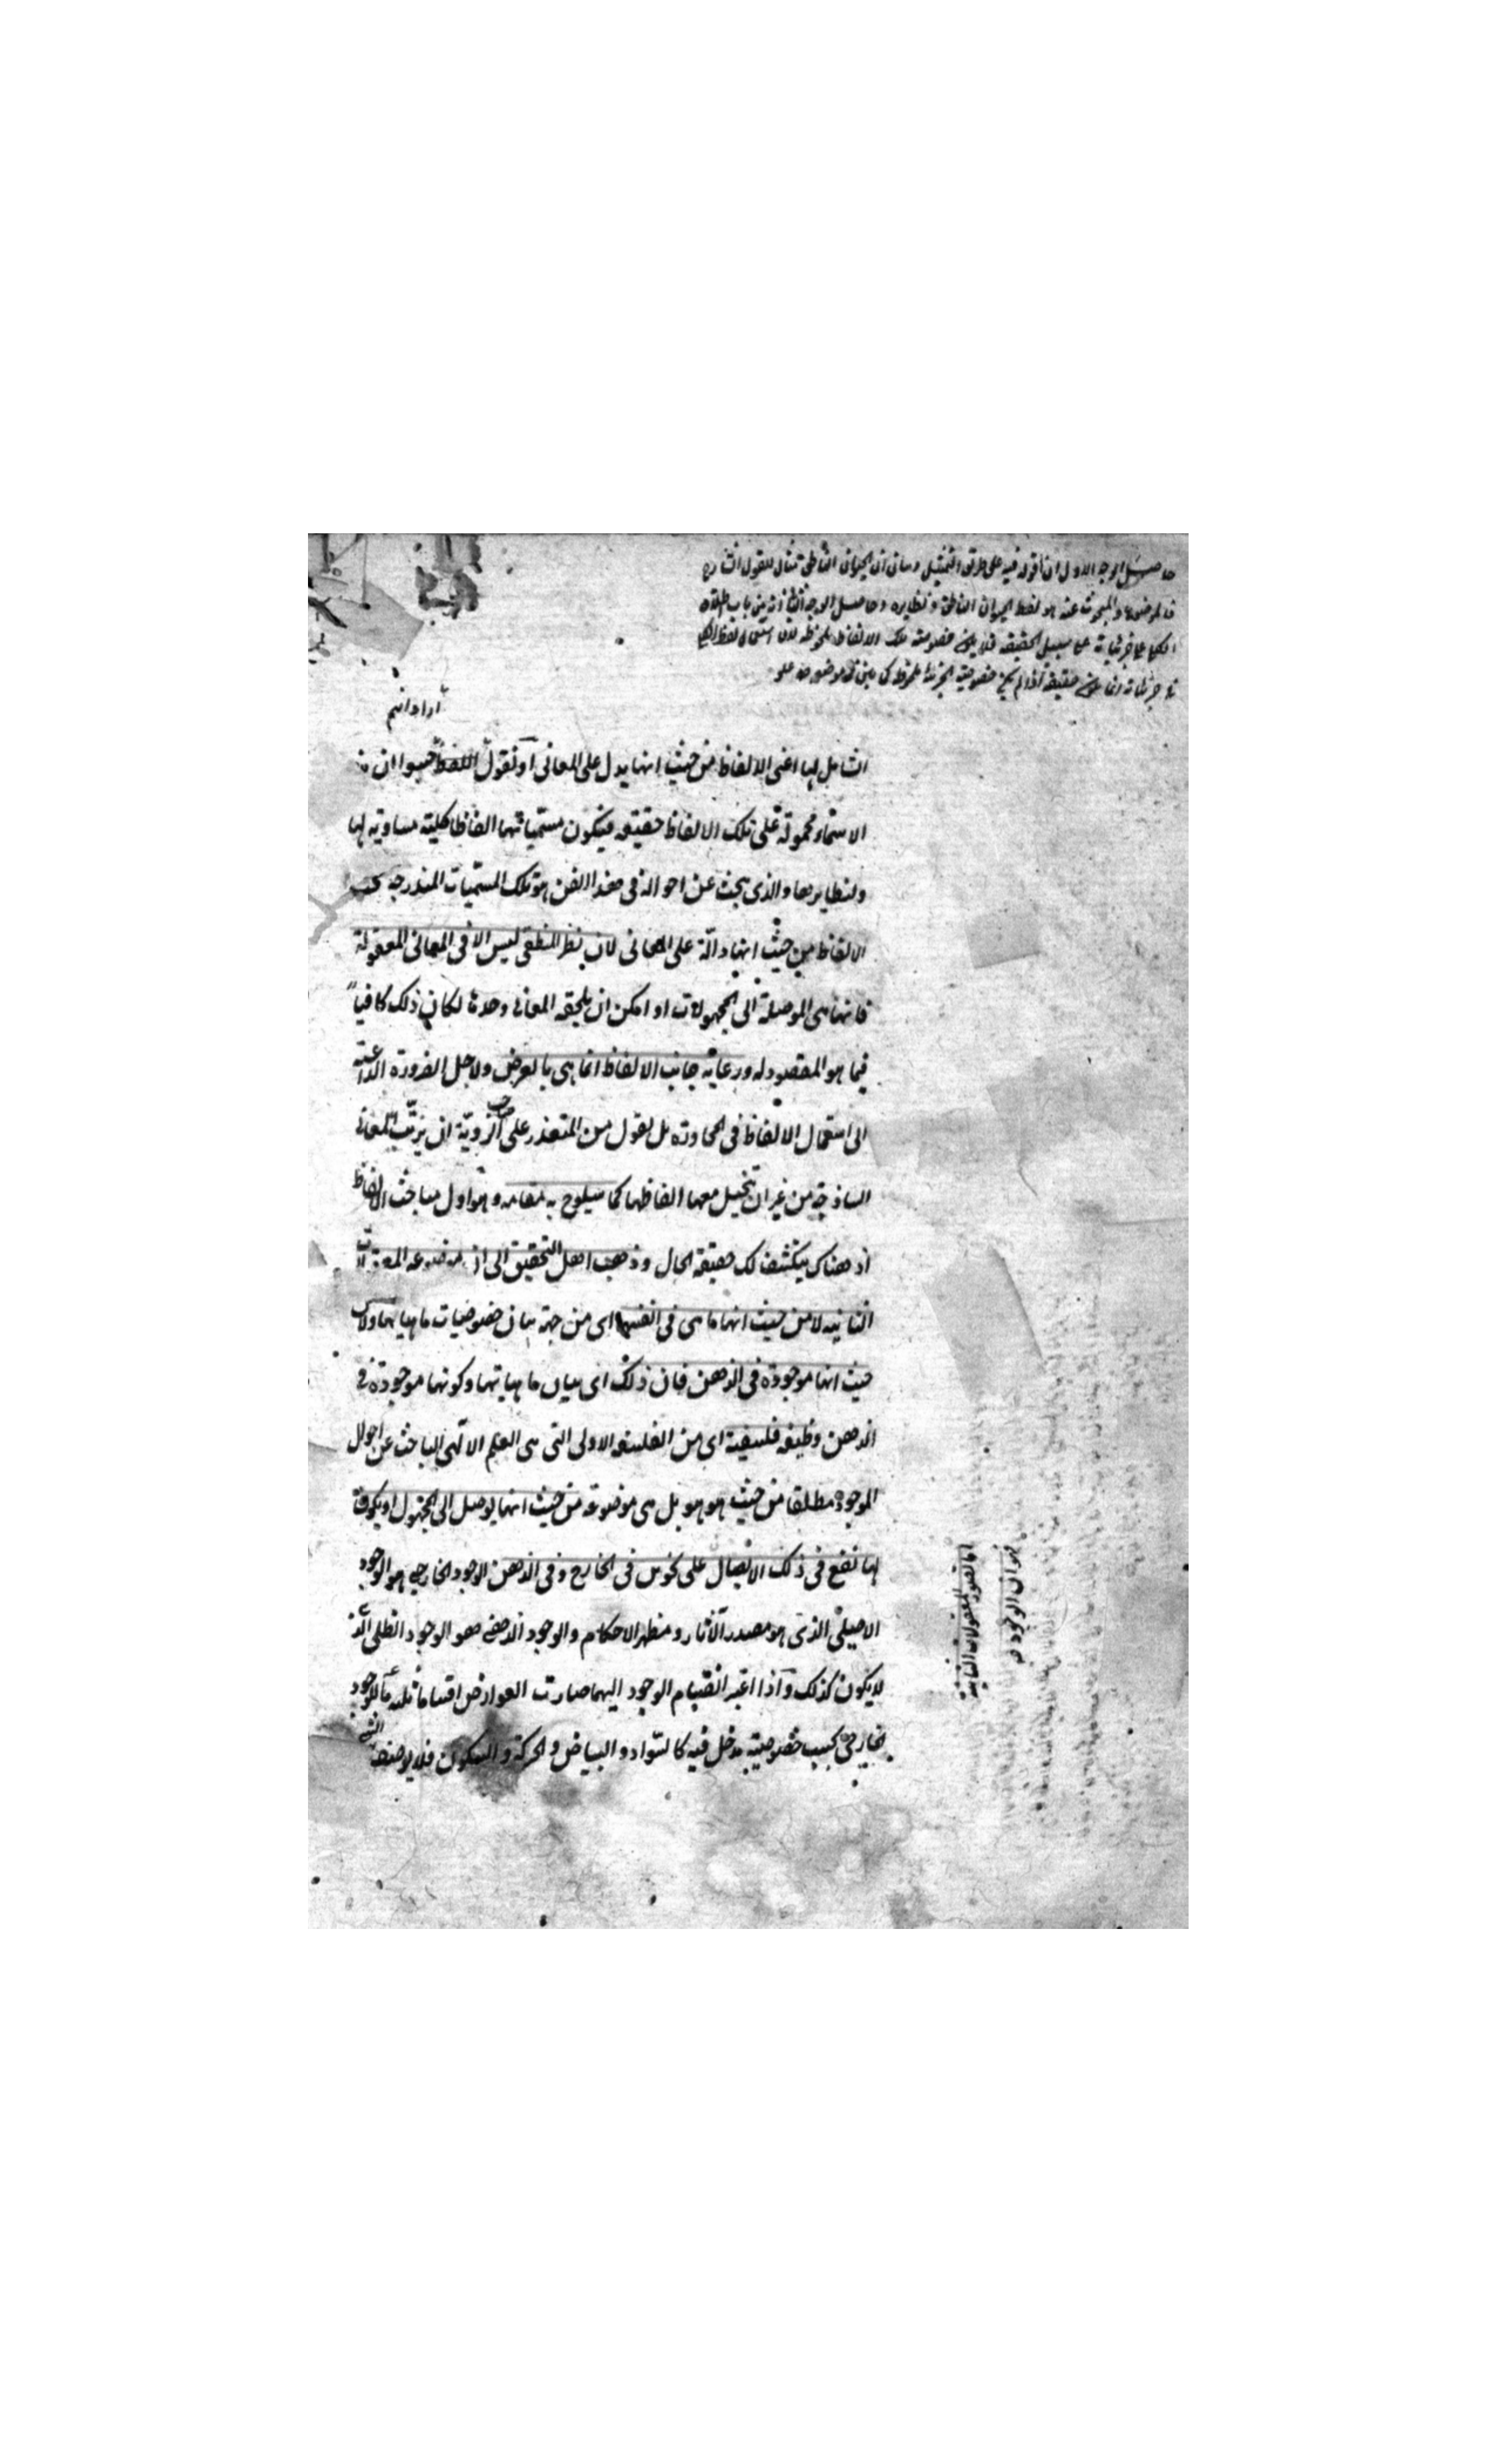 حاصل الوجه الاول ان قوله فيه على طريق التمثيل وبيان ان الحيوان الناطق مثال للقول الشارح
والمبحوث عنه هو لفظ الحيوان الناطق ونظايره وحاصل الوجه الثاني انه من باب اطلاق
الكلي على جزئياته على سبيل الحقيقة فلا يكون خصوصية تلك الالفاظ ملحوظة لان استعمال لفظ الكلي
في جزئياته انما يكون حقيقة اذا لم يكن خصوصية الجزئي
الشامل لها اعنى الالفاظ من حيث انها يدل على المعانى او نقول اللفظ حسبوا ان
الاسماء محمولة على تلك الالفاظ حقيقه فيكون مسمياتهما الفاظا كلية مساوية لها
ولنظايرها والذى يبحث عن احواله فى هذا الفن هو تلك المسميات المندرجه تحت
الالفاظ من حيث انها دالة على المعانى لان نظر المنطقى ليس الا فى المعانى المعقولة
فانها هى الموصلة الى المجهولات او امكن ان يلحقه المعانى وحدها لكان ذلك كافيا
فيما هو المقصود له ورعاية جانب الالفاظ انما هى بالعرض ولاجل الضرورة الداعية
الى استعمال الالفاظ فى المحاورة بل نقول من المتعذر على صاحب الروية ان يرتب المعانى
الساذجة من غير ان يتخيل معها الفاظها كما سيلوح به مقامه وهو اول مباحث الالفاظ
اذ هناك ينكشف لك حقيقة الحال وذهب اهل التحقيق الى ان موضوعه المعقولات
الثانيه لا من حيث انها ما هى فى انفسها اى من جهة بيان خصوصيات ماهياتها ولا من
حيث انها موجودة فى الذهن فان ذلك اى بيان ماهياتها وكونها موجودة فى
الذهن وظيفه فلسفية اى من الفلسفه الاولى التى هى العلم الالهى الباحث عن احوال
الموجود مطلقا من حيث هو هو بل هى موضوعه من حيث انها يوصل الى المجهول او يكون
لها نفع فى ذلك الايصال على نحوين فى الخارج وفى الذهن الوجود الخارجى هو الوجود
الاصيلى الذى هو مصدر الآثار ومظهر الاحكام والوجود الذهنى هو الوجود الظلى الذى
لا يكون كذلك واذا اعتبر انقسام الوجود اليهما صارت العوارض اقساما ثلثه ما للوجود
الخارجى بحسب خصوصيته مدخل فيه كالسواد والبياض والحركة والسكون فلا يوصف الشئ
المعقولات الثانية